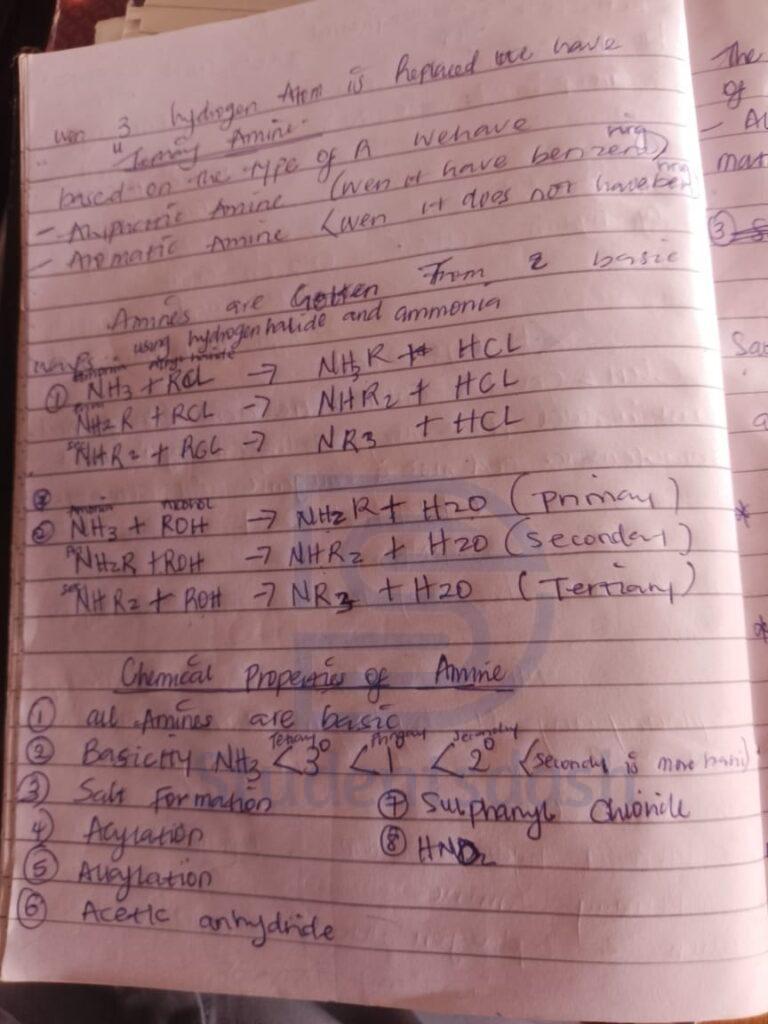 wen 3 hydrogen Atom is Replaced we have
" " Temary Amine.
based on the type of A we have
- Aliphactic Amine (wen it have benzene ring)
- Aromatic Amine (wen it does not have ben ring
Amines are Gotten From 2 basic
ways using hydrogen halide and ammonia
① NH3 + RCL → NH3R + HCL
NH2R + RCL → NHR2 + HCL
sec NHR2 + RCL → NR3 + HCL
② Ammonia NH3 + Alcohol ROH → NH2R + H2O (primary)
pri NH2R + ROH → NHR2 + H2O (secondary)
sec NHR2 + ROH → NR3 + H2O (Tertiary)
Chemical Properties of Amine
① all Amines are basic
② Basicity NH3 < Tetiary 3° < Primary 1° < Secondary 2° (secondy is more basic)
③ Salt Formation
④ Acylation
⑤ Alkylation
⑥ Acetic anhydride
⑦ Sulphanyl Chloride
⑧ HNO2
Studentsdash
The
of
- Al
mat
③
Sa
a
*
*